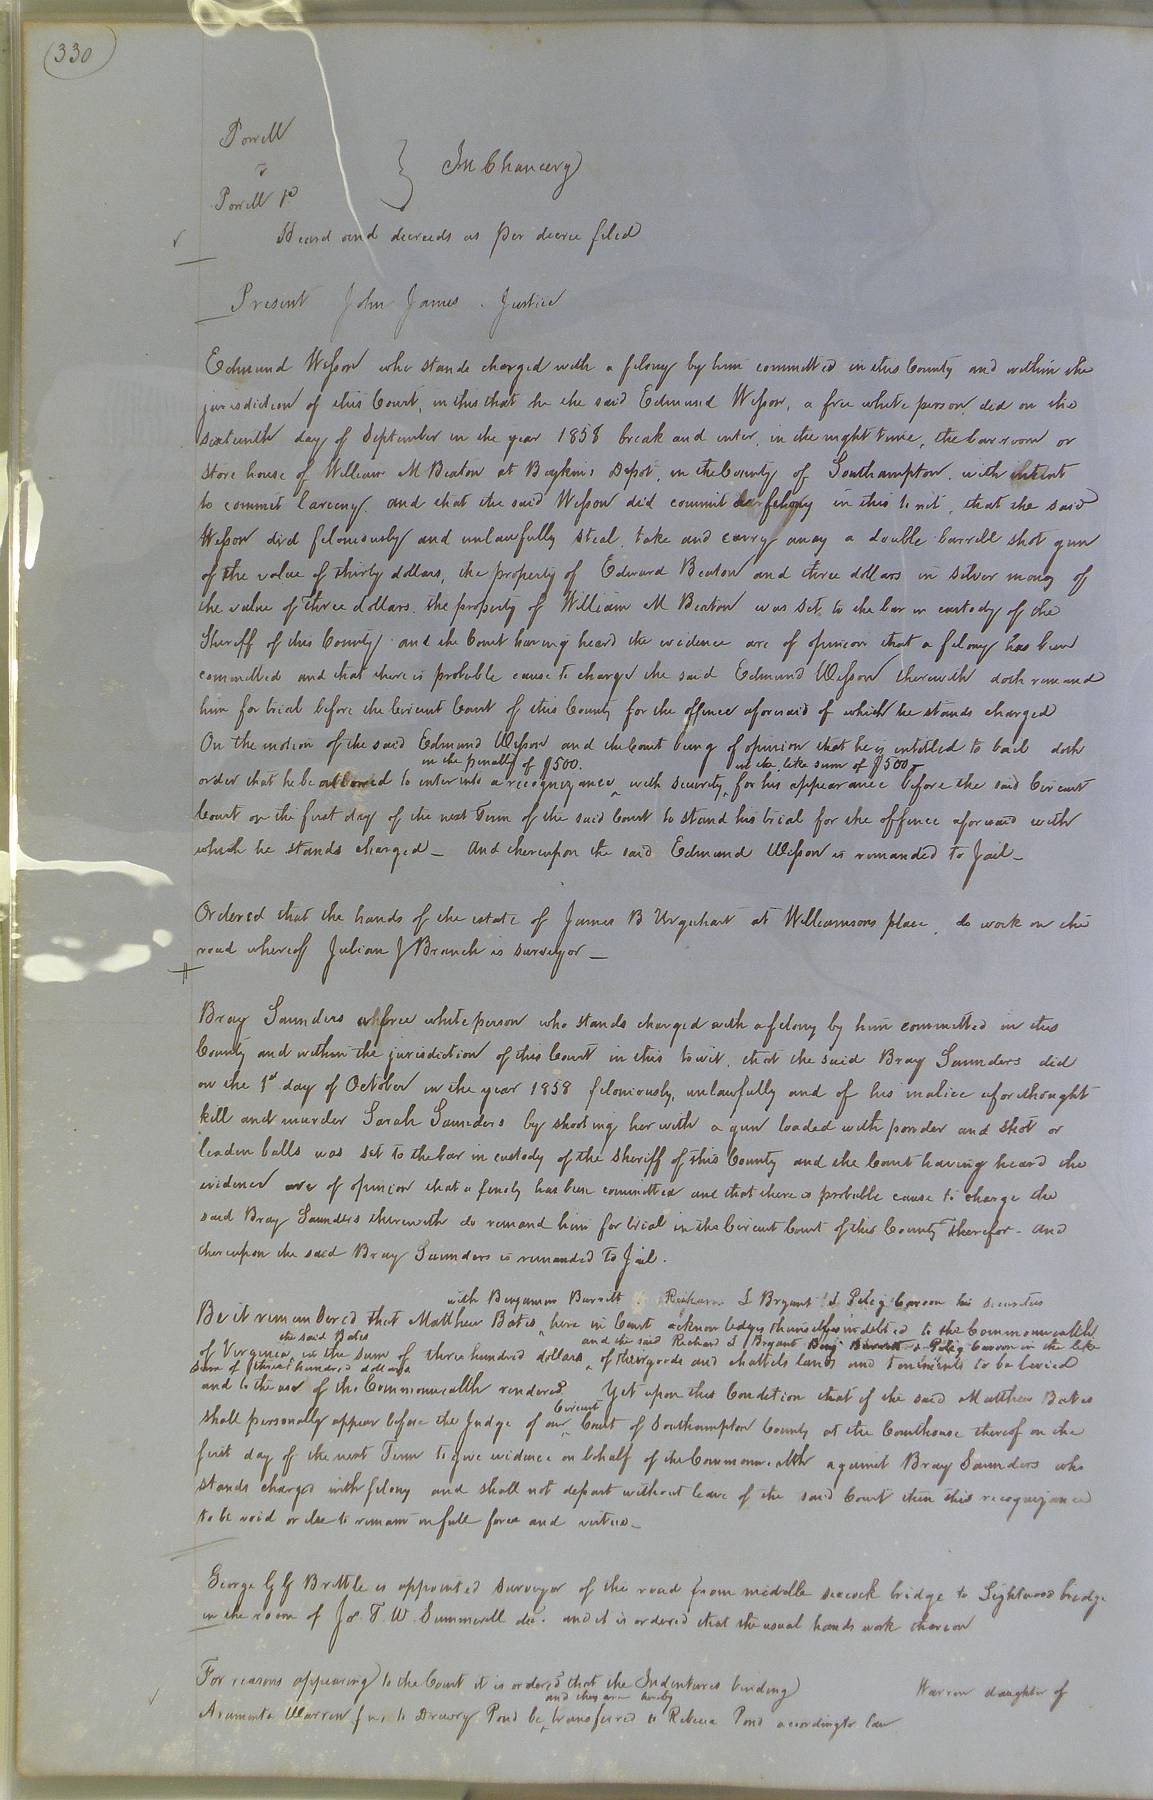 330
Powell
v
Powell
In Chancery
Heard and decreeds as per decree filed
Present John James. Justice
Edmund Wesson who stands charged with a felony by him committed in this County and within the
jurisdiction of this Court, in this that he the said Edmund Wesson, a free white person did on the
sixteenth day of September in the year 1858 break and enter, in the night time, the barroom or
store house of William M Beaton at Boykins Depot, in the County of Southampton, with intent
to commit larceny, and that the said Wesson did commit felony in this to wit, that the said
Wesson did feloniously and unlawfully steal, take and carry away a double barrell shot gun
of the value of thirty dollars, the property of Edward Beaton and three dollars in silver money of
the value of three dollars, the property of William M Beaton was set to the bar in custody of the
Sheriff of this County and the Court having heard the evidence are of opinion that a felony has been
committed and that there is probable cause to charge the said Edmund Wesson therewith doth remand
him for trial before the Circuit Court of this County for the offence aforesaid of which he stands charged
On the motion of the said Edmund Wesson and the Court being of opinion that he is intitled to bail doth
in the penalty of $500. in the like sum of $500
order that he be allowed to enter into a recognizance with security for his appearance before the said Circuit
Court on the first day of the next Term of the said Court to stand his trial for the offence aforesaid with
which he stands charged _ And thereupon the said Edmund Wesson is remanded to Jail _
Ordered that the hands of the estate of James B Urquhart at Williamsons place, do work on the
road whereof Julian J Branch is surveyor _
Bray Saunders a free white person who stands charged with a felony by him committed in this
County and within the jurisdiction of this Court in this towit, that the said Bray Saunders did
on the 1st day of October in the year 1858 feloniously, unlawfully and of his malice aforethought
kill and murder Sarah Saunders by shooting her with a gun loaded with powder and shot or
leaden balls was set to the bar in custody of the Sheriff of this County and the Court having heard the
evidence are of opinion that a has been committed and that there is probable cause to charge the
said Bray Saunders therewith do remand him for trial in the Circuit Court of this County therefor - And
thereupon the said Bray Saunders is remanded to Jail.
with Benjamin Barrett Richard I Bryant & Peleg Carson his securities
Be it remembered that Matthew Bates here in Court acknowledges themselves indebted to the Commonwealth
the said Bates and the said Richard I Bryant Benj Barrett & Peleg Carson in the like
of Virginia in the sum of three hundred dollars of their goods and chattels lands and tenements to be levied
sum of three hundred dollars
and to the use of the Commonwealth rendered. Yet upon this Condition that if the said Matthew Bates
Circuit
shall personally appear before the Judge of our Court of Southampton County at the Courthouse thereof on the
first day of the next Term to give evidence on behalf of the Commonwealth against Bray Saunders who
stands charged with felony and shall not depart without leave of the said Court then this recognizance
to be void or else to remain in full force and virtue _
George G G Brittle is appointed surveyor of the road from middle seacock bridge to Lightwood bridge
in the room of Jos. T. W. Summerell dec. and it is ordered that the usual hands work thereon
For reasons appearing to the Court it is ordered that the Indentures binding Warren daughter of
and they are hereby
Araminta Warren to Drewry Pond be transferred to Rebecca Pond according to law